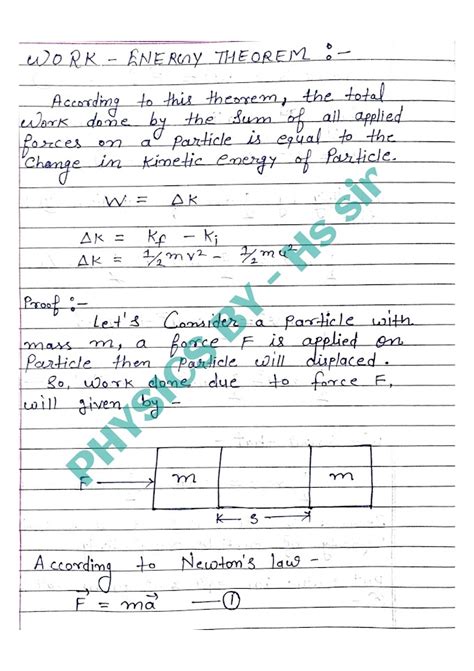 WORK - ENERGY THEOREM :-
According to this theorem, the total
work done by the sum of all applied
forces on a particle is equal to the
change in kinetic energy of Particle.
W = ΔK
ΔK = Kf - Ki
ΔK = 1/2 mv² - 1/2 mu²
Proof :-
Let's Consider a particle with
mass m, a force F is applied on
Particle then particle will displaced.
So, work done due to force F,
will given by -
F m m
s
According to Newton's law -
F⃗ = ma⃗ — ①
PHYSICS BY - Hs sir